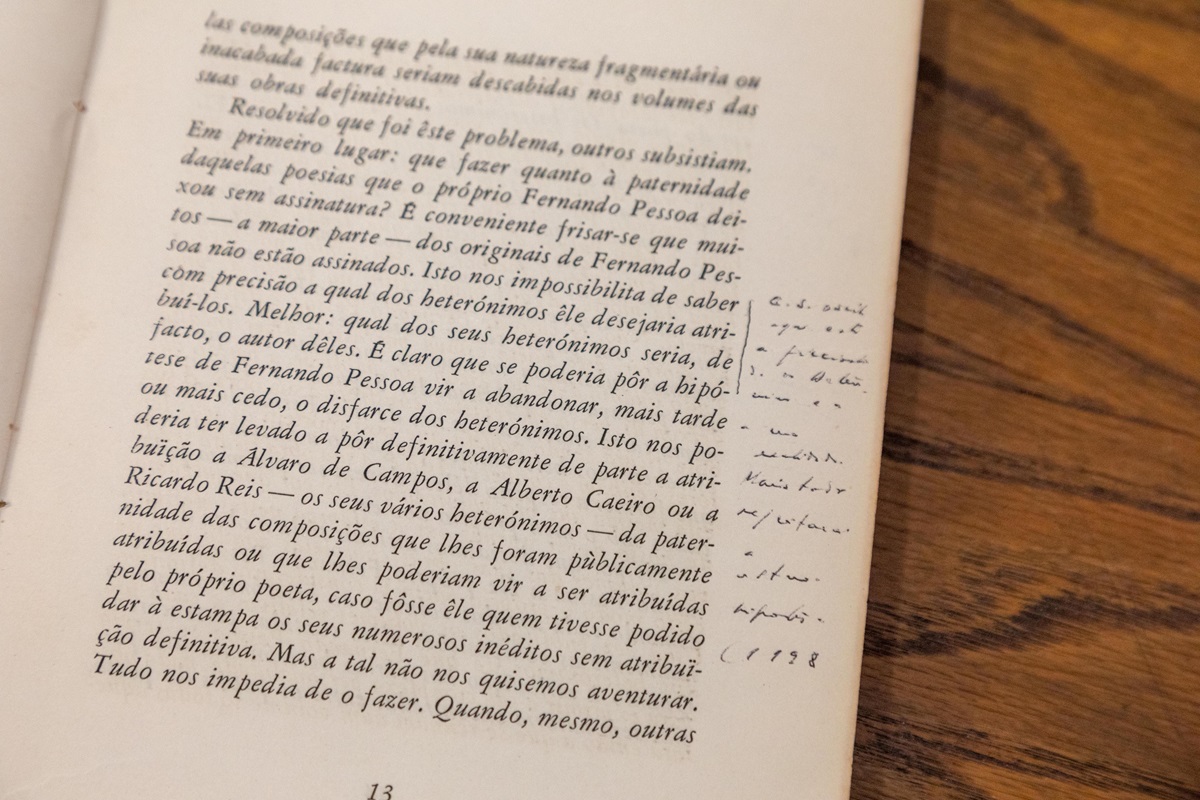 las composições que pela sua natureza fragmentária ou
inacabada factura seriam descabidas nos volumes das
suas obras definitivas.
Resolvido que foi êste problema, outros subsistiam.
Em primeiro lugar: que fazer quanto à paternidade
daquelas poesias que o próprio Fernando Pessoa dei-
xou sem assinatura? É conveniente frisar-se que mui-
tos — a maior parte — dos originais de Fernando Pes-
soa não estão assinados. Isto nos impossibilita de saber
com precisão a qual dos heterónimos êle desejaria atri-
buí-los. Melhor: qual dos seus heterónimos seria, de
facto, o autor dêles. É claro que se poderia pôr a hipó-
tese de Fernando Pessoa vir a abandonar, mais tarde
ou mais cedo, o disfarce dos heterónimos. Isto nos po-
deria ter levado a pôr definitivamente de parte a atri-
buïção a Álvaro de Campos, a Alberto Caeiro ou a
Ricardo Reis — os seus vários heterónimos — da pater-
nidade das composições que lhes foram pùblicamente
atribuídas ou que lhes poderiam vir a ser atribuídas
pelo próprio poeta, caso fôsse êle quem tivesse podido
dar à estampa os seus numerosos inéditos sem atribuï-
ção definitiva. Mas a tal não nos quisemos aventurar.
Tudo nos impedia de o fazer. Quando, mesmo, outras
13